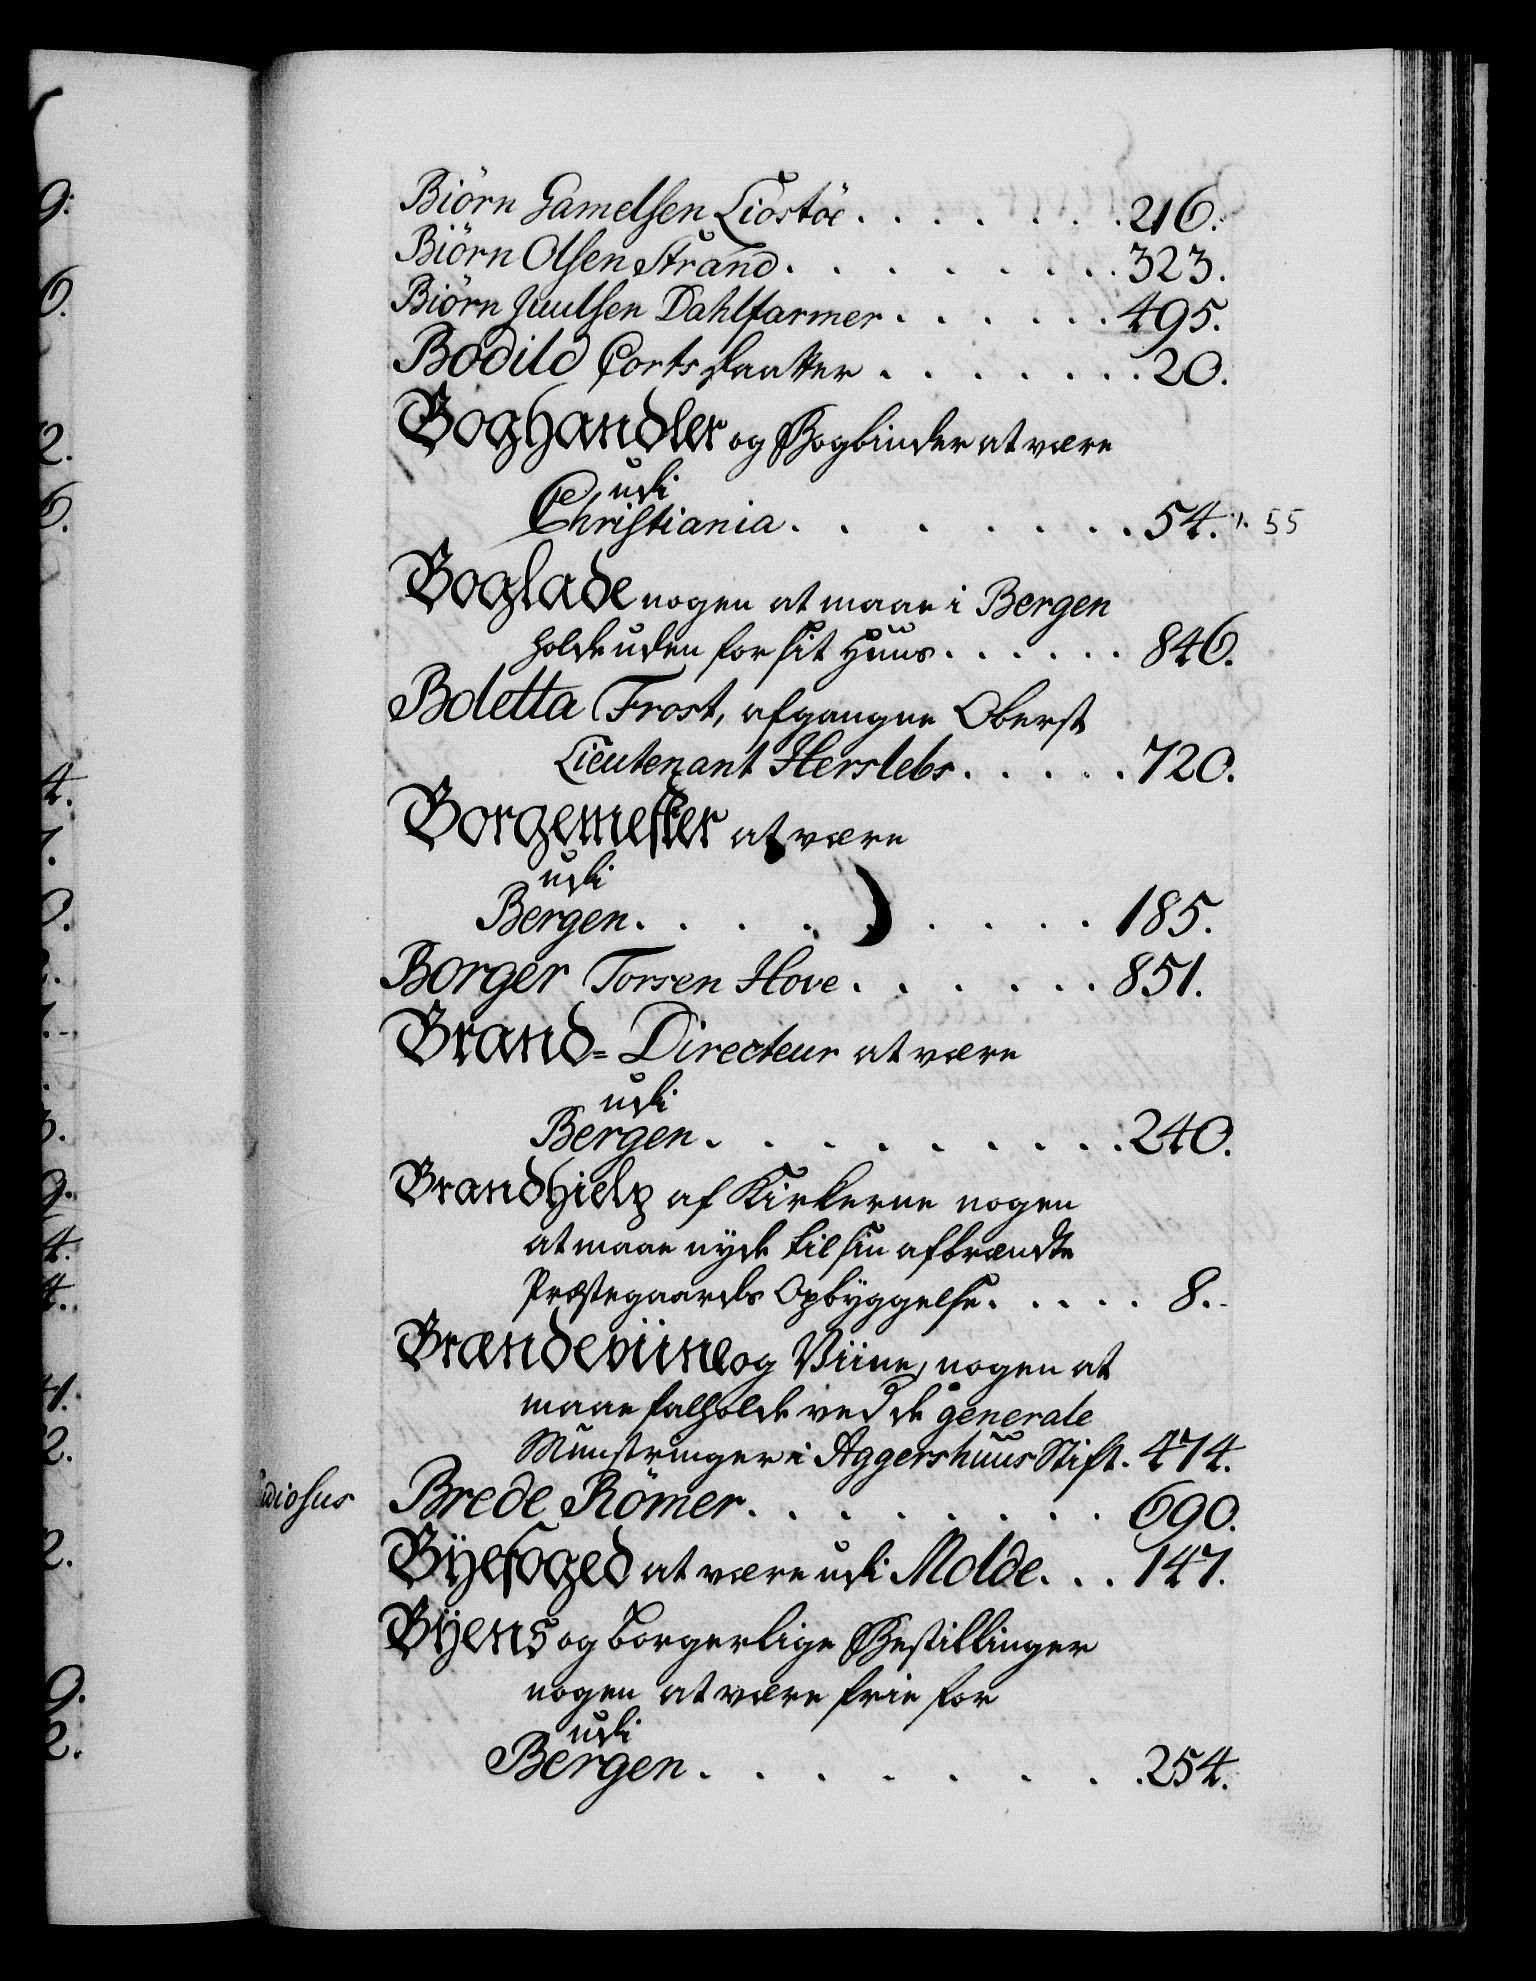 Biörn Gamelsen Liostöe . . . . . . . 216.
Biörn Olsen Strand . . . . . . . . 323.
Biörn Juulsen Dahlfarmer . . . . . . 495.
Bodild Corts Daatter . . . . . . . . 20.
Boghandler og Bogbinder at være
udi
Christiania . . . . . . . . 54. 55
Boglade nogen at maae i Bergen
holde uden for sit Huus . . . . . . 846.
Boletta Frost, afgangne Oberst
Lieutenant Herslebs . . . . . 720.
Borgemester at være
udi
Bergen . . . . . . . . . 185.
Borger Torsen Hove . . . . . . 851.
Brand= Directeur at være
udi
Bergen . . . . . . . . . 240.
Brandhielp af Kirkerne nogen
at maae nyde til sin afbrændte
Præstegaards Opbyggelse . . . . . 8.
Brændeviine og Viine, nogen at
maae falholde ved de generale
Munstringer i Aggershuus Stift. 474.
Brede Römer . . . . . . . . 690.
Bÿefoged at være udi Molde . . . 147.
Bÿens og borgerlige Bestillinger
nogen at være frie for
udi
Bergen . . . . . . . . 254.